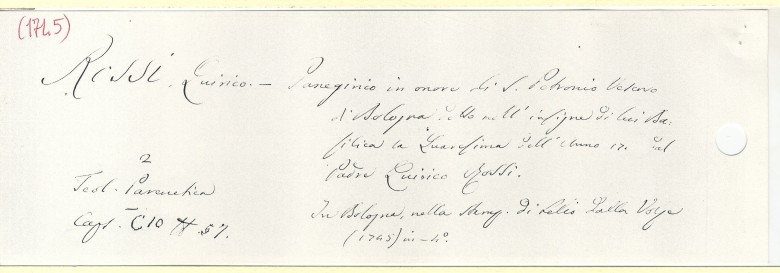 (1745)
Rossi Quirico. — Panegirico in onore di S. Petronio Vescovo
di Bologna detto nell' insigne di lui Ba-
silica la Quaresima dell' Anno 17. dal
Padre Quirico Rossi.
In Bologna, nella stamp. di Lelio Dalla Volpe
(1745) in-4°.
2
Teol. Parenetica
Caps. C10 # 57.